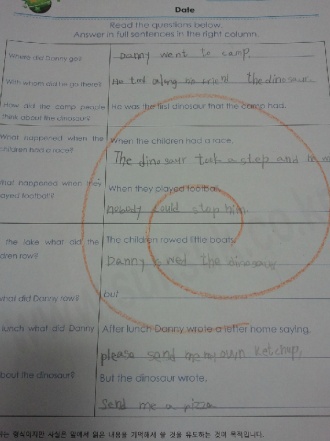 Date
Read the questions below.
Answer in full sentences in the right column.
Where did Danny go?
Danny went to camp.
With whom did he go there?
He took along friend the dinosaur.
How did the camp people
think about the dinosaur?
He was the first dinosaur that the camp had.
What happened when the
children had a race?
When the children had a race,
The dinosaur took a step and
what happened when they
played football?
When they played football,
nobody could stop him.
the lake what did the
dren row?
The children rowed little boats.
Danny the dinosaur
what did Danny row?
but
lunch what did Danny
After lunch Danny wrote a letter home saying,
please send me my own ketchup,
about the dinosaur?
But the dinosaur wrote,
Send me a pizza